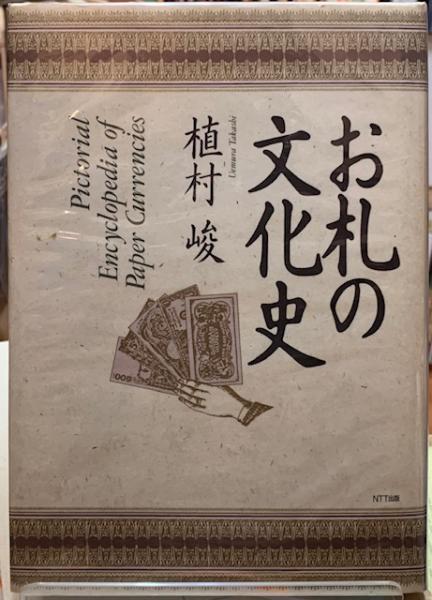 お札の
文化史
植村 峻
Uemura Takashi
Pictorial
Encyclopedia of
Paper Currencies
500
NTT出版